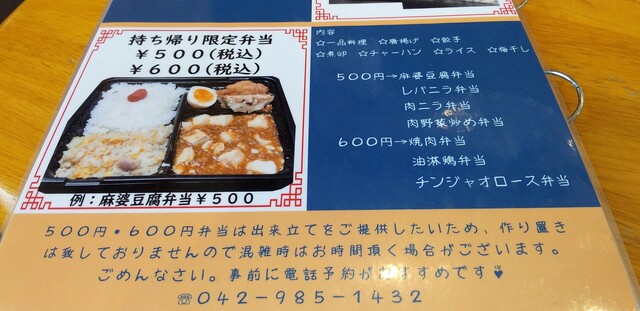 持ち帰り限定弁当
￥５００(税込)
￥６００(税込)
例：麻婆豆腐弁当￥５００
内容
☆一品料理　☆唐揚げ　☆餃子
☆煮卵　☆チャーハン　☆ライス　☆梅干し
５００円→麻婆豆腐弁当
レバニラ弁当
肉ニラ弁当
肉野菜炒め弁当
６００円→焼肉弁当
油淋鶏弁当
チンジャオロース弁当
５００円・６００円弁当は出来立てをご提供したいため、作り置き
は致しておりませんので混雑時はお時間頂く場合がございます。
ごめんなさい。事前に電話予約がおすすめです
☏０４２－９８５－１４３２